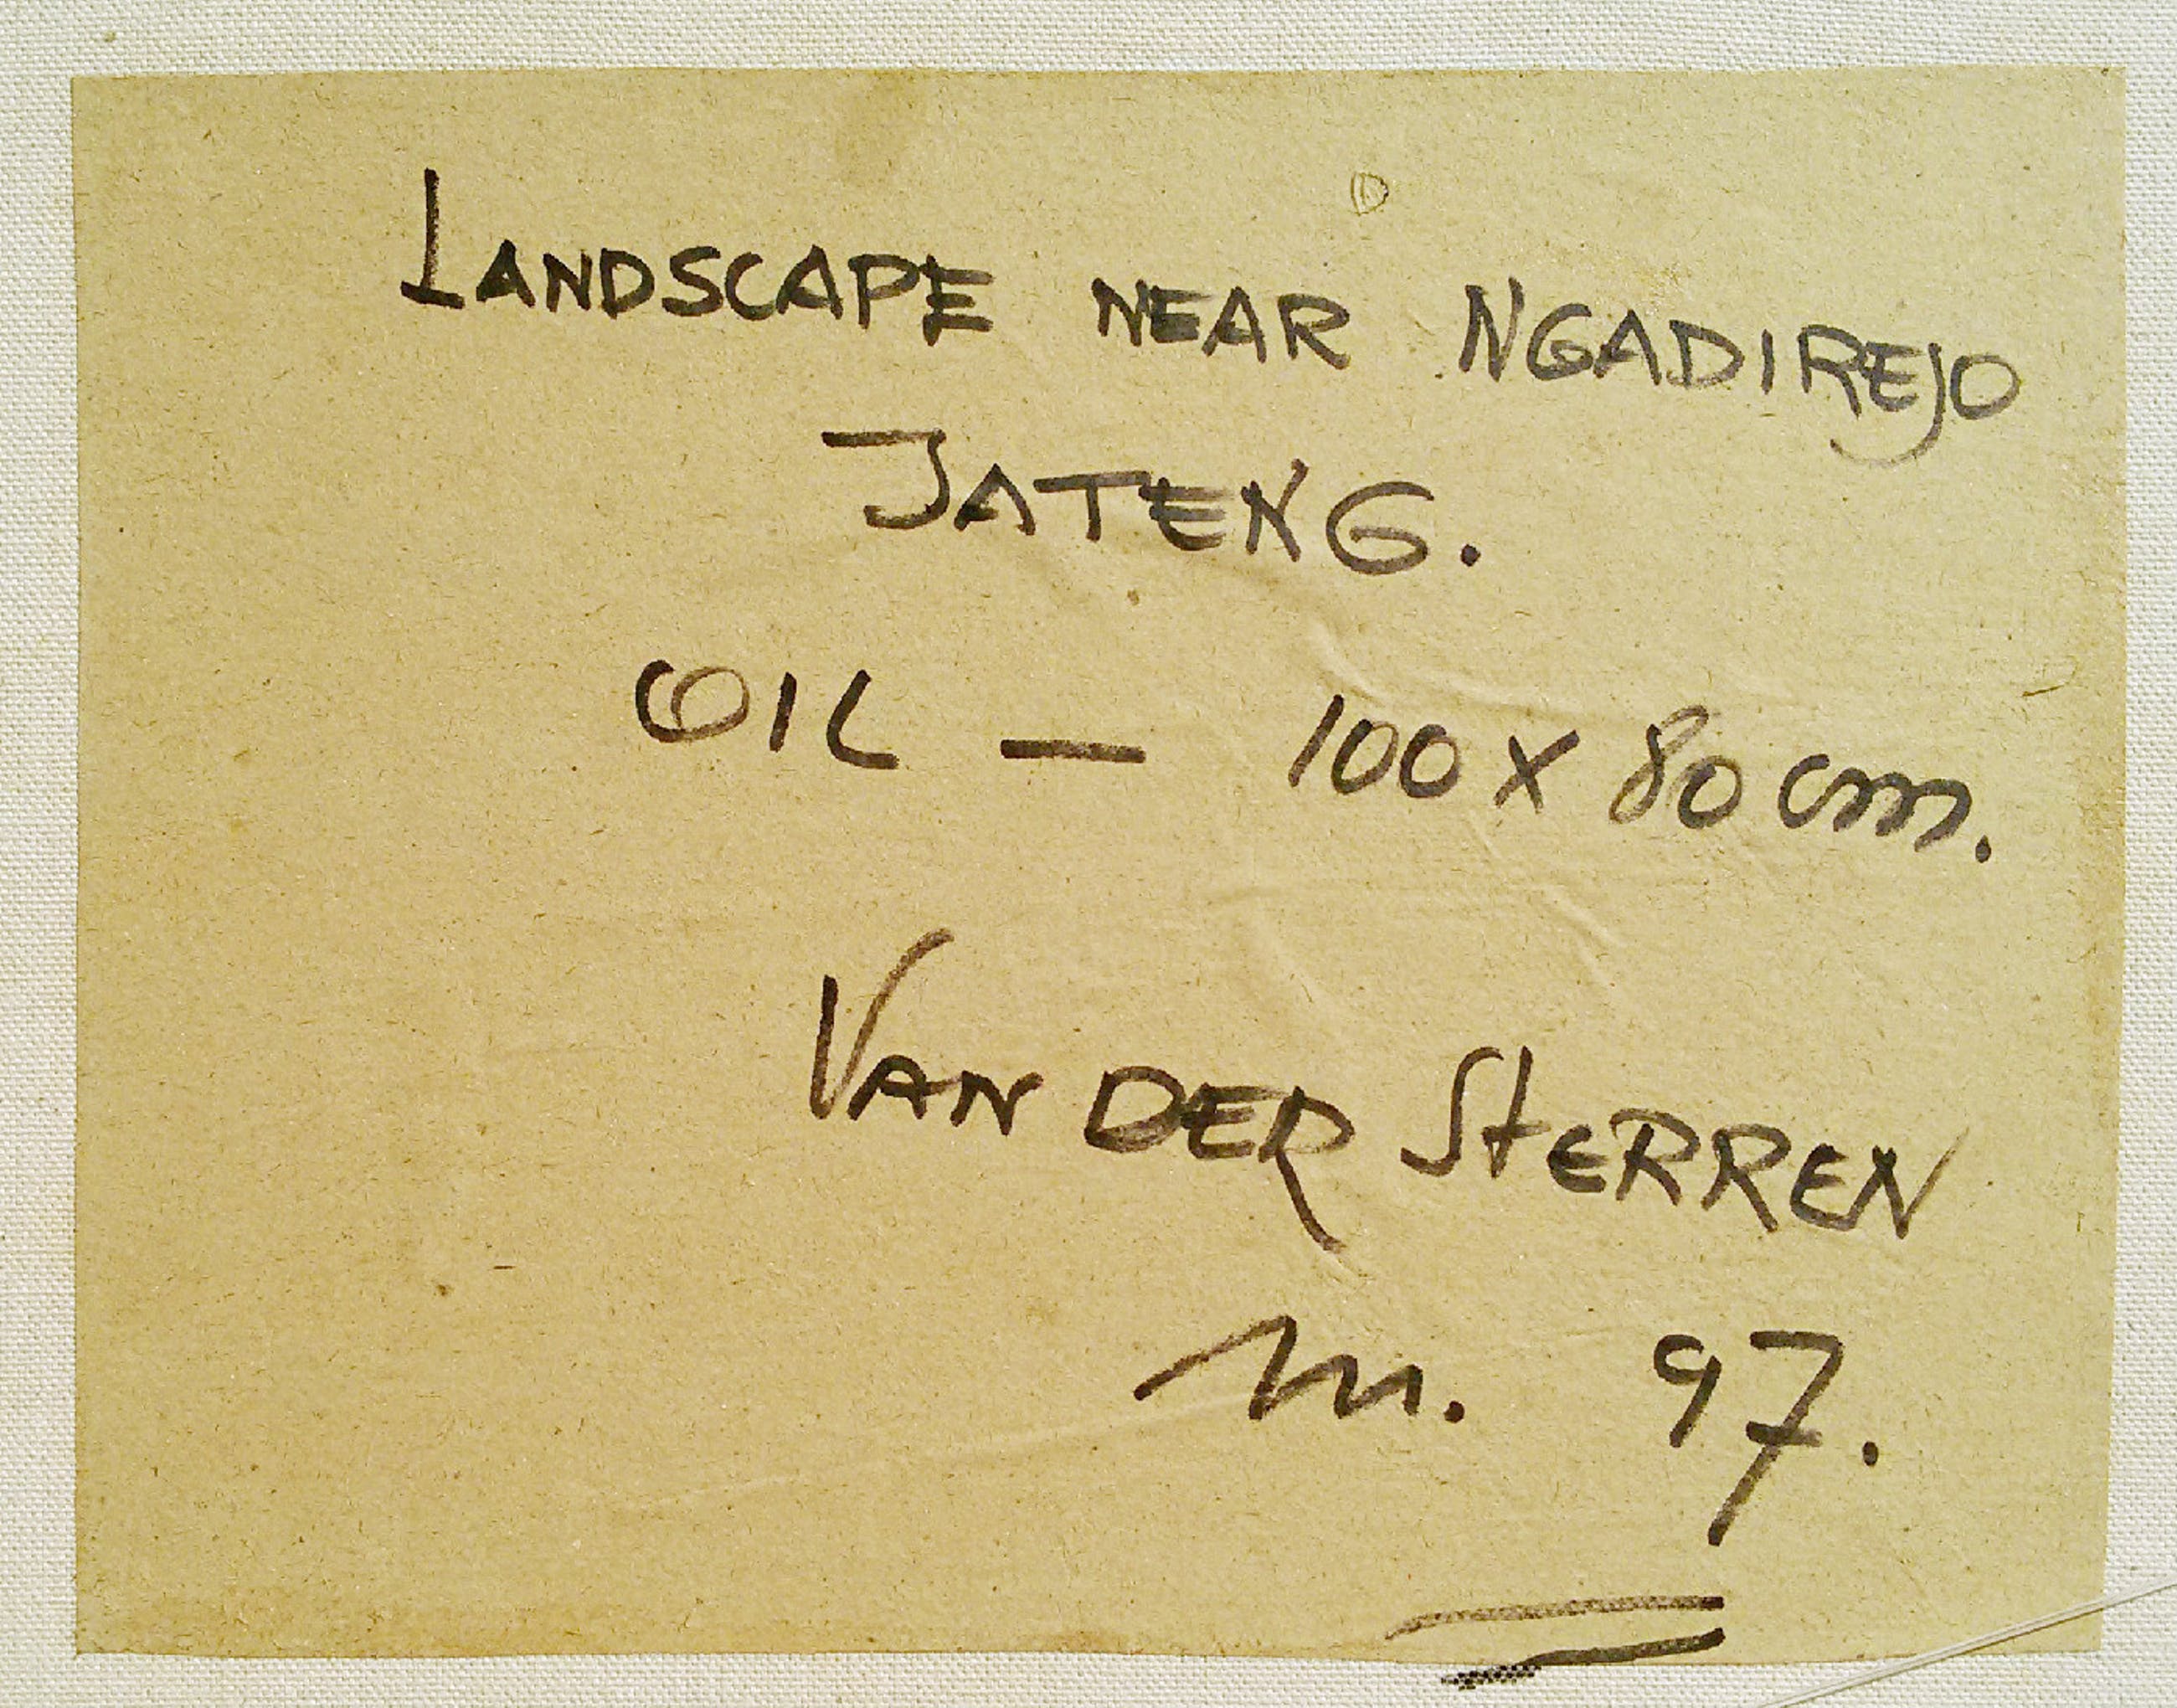 LANDSCAPE NEAR NGADIREJO
JATENG.
OIL — 100 x 80 cm.
VAN DER STERREN
m. 97.